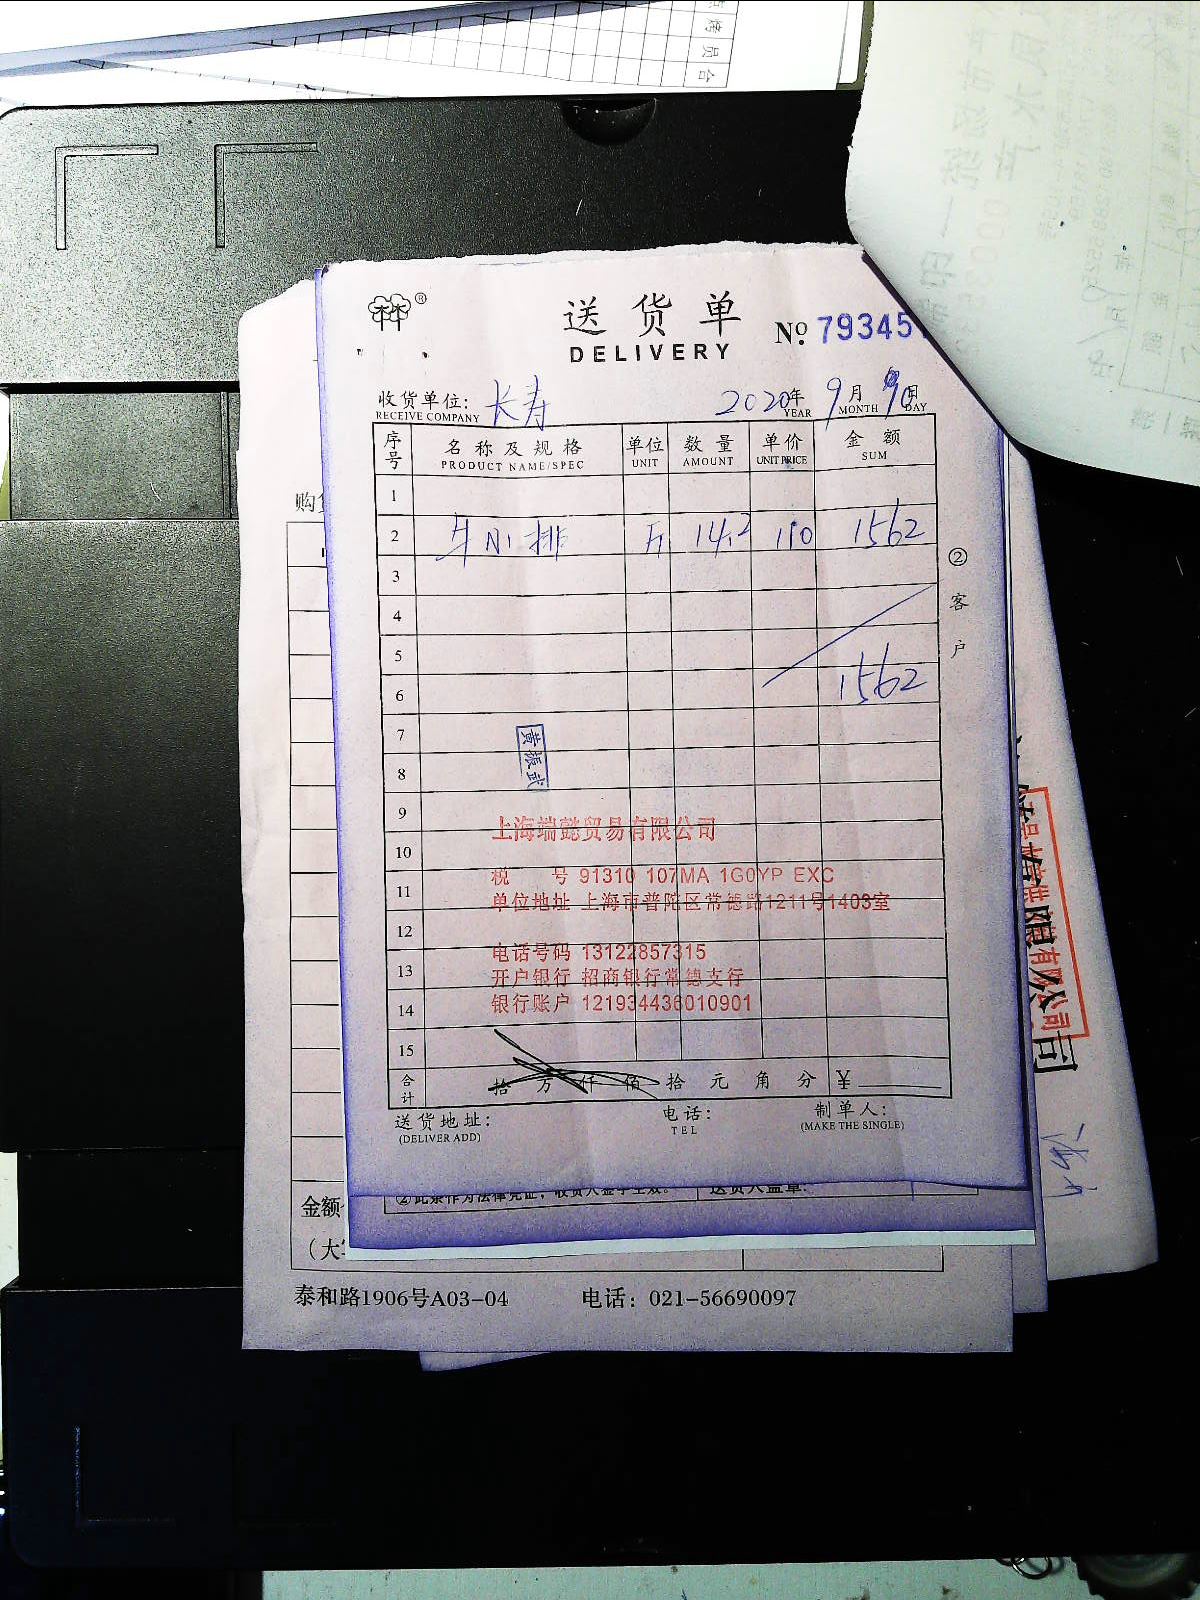 送货单
DELIVERY
№ 79345
收货单位: 长寿 2020年 9月 日
RECEIVE COMPANY YEAR MONTH DAY
序号 名称及规格 单位 数量 单价 金额
PRODUCT NAME/SPEC UNIT AMOUNT UNIT PRICE SUM
1
2 牛小排 斤 14.2 110 1562
3
4
5
6 1562
7
8
9
10
11
12
13
14
15
②客户
黄振武
上海端懿贸易有限公司
税 号 91310 107MA 1G0YP EXC
单位地址 上海市普陀区常德路1211号1403室
电话号码 13122857315
开户银行 招商银行常德支行
银行账户 121934436010901
合计 拾 万 仟 佰 拾 元 角 分 ¥
送货地址: 电话: 制单人:
(DELIVER ADD) TEL (MAKE THE SINGLE)
金额
(大
泰和路1906号A03-04 电话: 021-56690097
有限公司